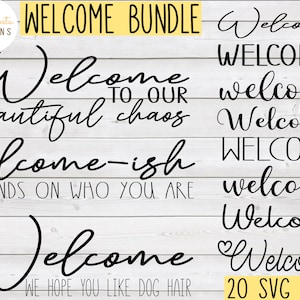 WELCOME BUNDLE
Welcome
TO OUR
beautiful chaos
Welcome-ish
DEPENDS ON WHO YOU ARE
Welcome
WE HOPE YOU LIKE DOG HAIR
Welcome
WELCOME
welcome
Welcome
WELCOME
welcome
Welcome
Welcome
20 SVG